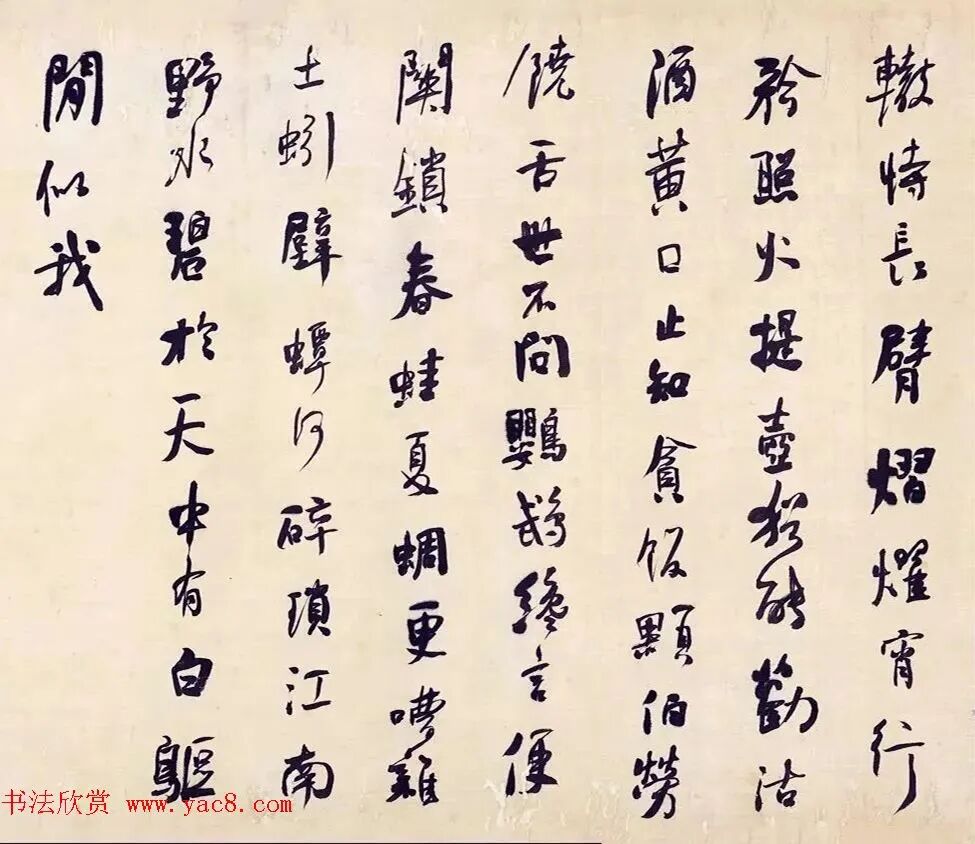 轍恃長臂熠燿宵行
矜照火提壺猶能勸沽
酒黃口止知貪飯顆伯勞
饒舌世不問鸚鵡纔言便
關鎖春蛙夏蜩更嘈雜
土蚓壁蟫何碎瑣江南
野水碧於天中有白鷗
閒似我
书法欣赏 www.yac8.com